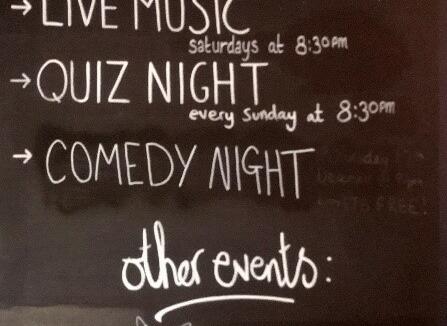 → LIVE MUSIC
saturdays at 8:30pm
→ QUIZ NIGHT
every Sunday at 8:30pm
→ COMEDY NIGHT
FREE!
other events: